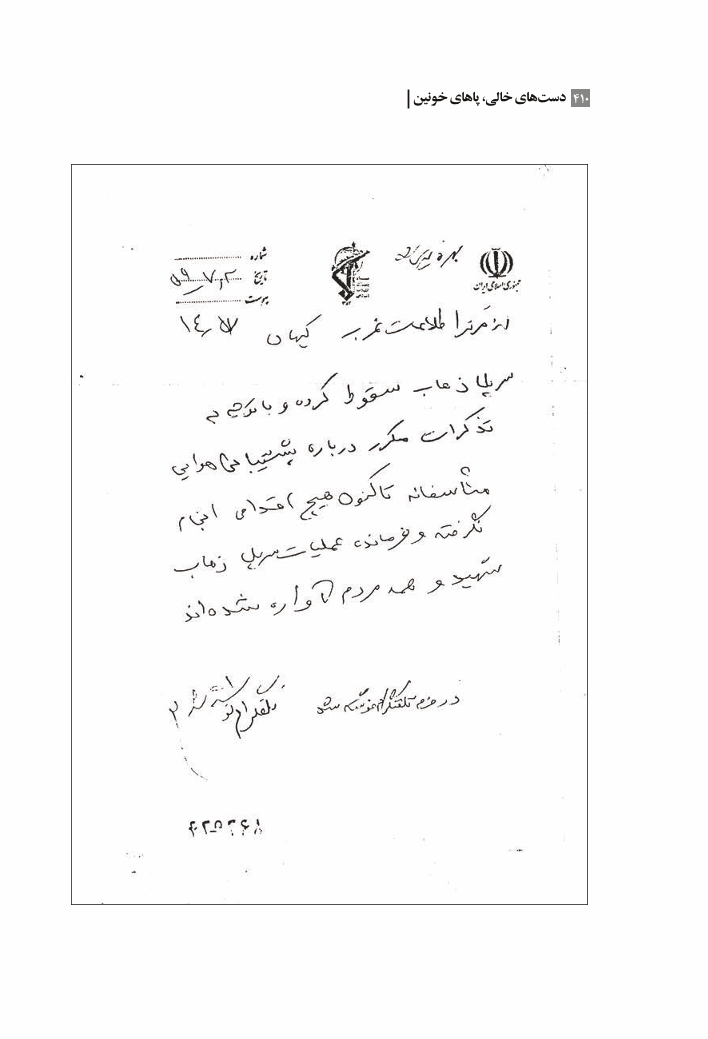 ۴۱۰ دست‌های خالی، پاهای خونین
جمهوری اسلامی ایران
شماره
تاریخ ۵۹/۷/۲
پیوست
از مرکز اطلاعات غرب کیهان
سرپل ذهاب سقوط کرده و با توجه به
تذکرات مکرر درباره پشتیبانی هوایی
متأسفانه تاکنون هیچ اقدامی انجام
نگرفته و فرمانده عملیات سرپل ذهاب
شهید و همه مردم آواره شده‌اند
در فرم تلفنگرام نوشته شد